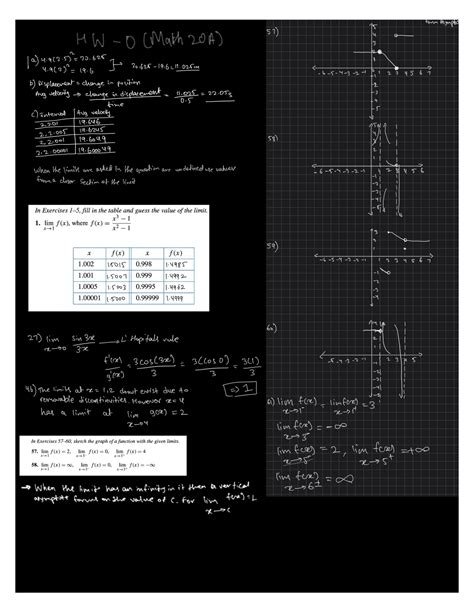 HW-0 (Math 20A)
1 a) 4.9(2.5)² = 30.625
4.9(2)² = 19.6
30.625 - 19.6 = 11.025m
b) Displacement = change in position
Avg velocity → change in displacement / time = 11.025 / 0.5 = 22.05
c) Interval Avg velocity
2, 2.01 19.649
2, 2.005 19.6245
2, 2.001
2, 2.00001
When the limits are asked in the question are undefined we
from a closer section of the limit
In Exercises 1–5, fill in the table and guess the value of the limit.
1. lim x→1 f(x), where f(x) = (x³ − 1)/(x² − 1)
x f(x) x f(x)
1.002 1.5015 0.998 1.4985
1.001 1.5007 0.999 1.4992
1.0005 1.5003 0.9995 1.4962
1.00001 1.5000 0.99999 1.4999
27) lim x→0 sin 3x / 3x → L'Hopital's rule
f'(x)/g'(x) = 3cos(3x)/3 = 3(cos 0)/3 = 3(1)/3
=) 1
The limits at x = 1,2 dont exist due to
removable discontinuities. However x=4
has a limit at lim x→4 g(x) = 2
In Exercises 57–60, sketch the graph of a function with the given limits.
57. lim x→1 f(x) = 2, lim x→3⁻ f(x) = 0, lim x→3⁺ f(x) = 4
58. lim x→1 f(x) = ∞, lim x→3⁻ f(x) = 0, lim x→3⁺ f(x) = −∞
→ When the limit has an infinity in it then a vertical
asymptote forms on the value of C. For lim x→c f(x) = L
57)
-6 -5 -4 -3 -2 -1
58)
-6 -5 -4 -3 -2 -1
59)
60)
lim f(x) = lim f(x) = 3
lim f(x) = -∞
lim f(x) = 2, lim f(x) = +∞
x→5⁻ x→5⁺
lim f(x) = ∞
x→6±